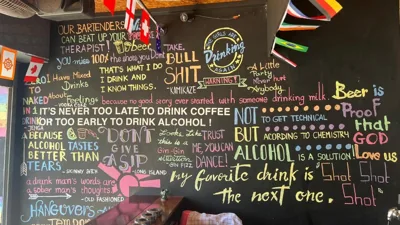 OUR BARTENDERS
CAN BEAT UP YOUR
THERAPIST!
YOU miss 100% the shots you don't
THAT'S WHAT I DO
I DRINK AND
I KNOW THINGS.
TAKE
BULL
SHIT
"KAMIKAZE
GIRLS ARE
Drinking
AGAIN!
WARNING!!
A Little
Party
Never hurt
Anybody
ZERO
TO
NAKED
I Have Mixed
Drinks
About
Feelings
because no good story ever started with someone drinking milk.
IT'S NEVER TOO LATE TO DRINK COFFEE
OR TOO EARLY TO DRINK ALCOHOL!
BECAUSE
ALCOHOL TASTES
BETTER THAN
TEARS
- SKINNY BITCH
DON'T
GIVE
A SIP
- LONG ISLAND
Looks Like
This is a
TRUST
ME, YOU
CAN
DANCE!
NOT TO GET TECHNICAL
BUT ACCORDING TO CHEMISTRY
ALCOHOL IS A SOLUTION!
Beer is
Proof
that
GOD
Love us
a drunk man's words are
a sober man's thoughts
- OLD FASHIONED
HANGOVERS
my favorite drink is "Shot Shot
the next one. Shot Shot